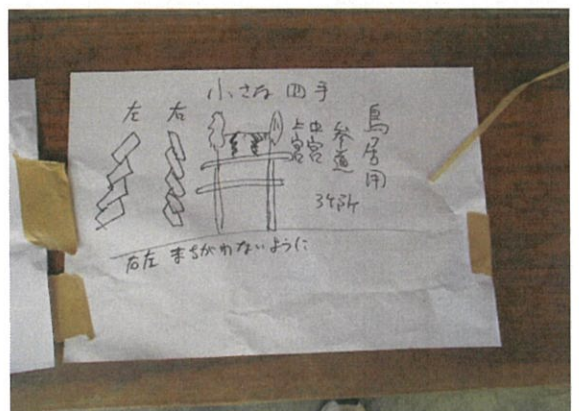 小さな四手
左 右
鳥居用
参道
中宮
上宮
3ケ所
右左 まちがわないように